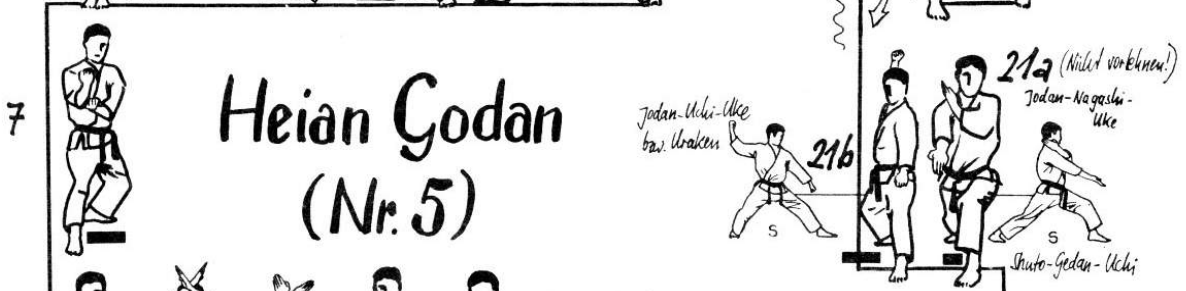 7
Heian Godan
(Nr. 5)
Jodan-Uchi-Uke
bzw. Uraken
21b
21a (Nicht vorlehnen!)
Jodan-Nagashi-
Uke
S
S
Shuto-Gedan-Uchi